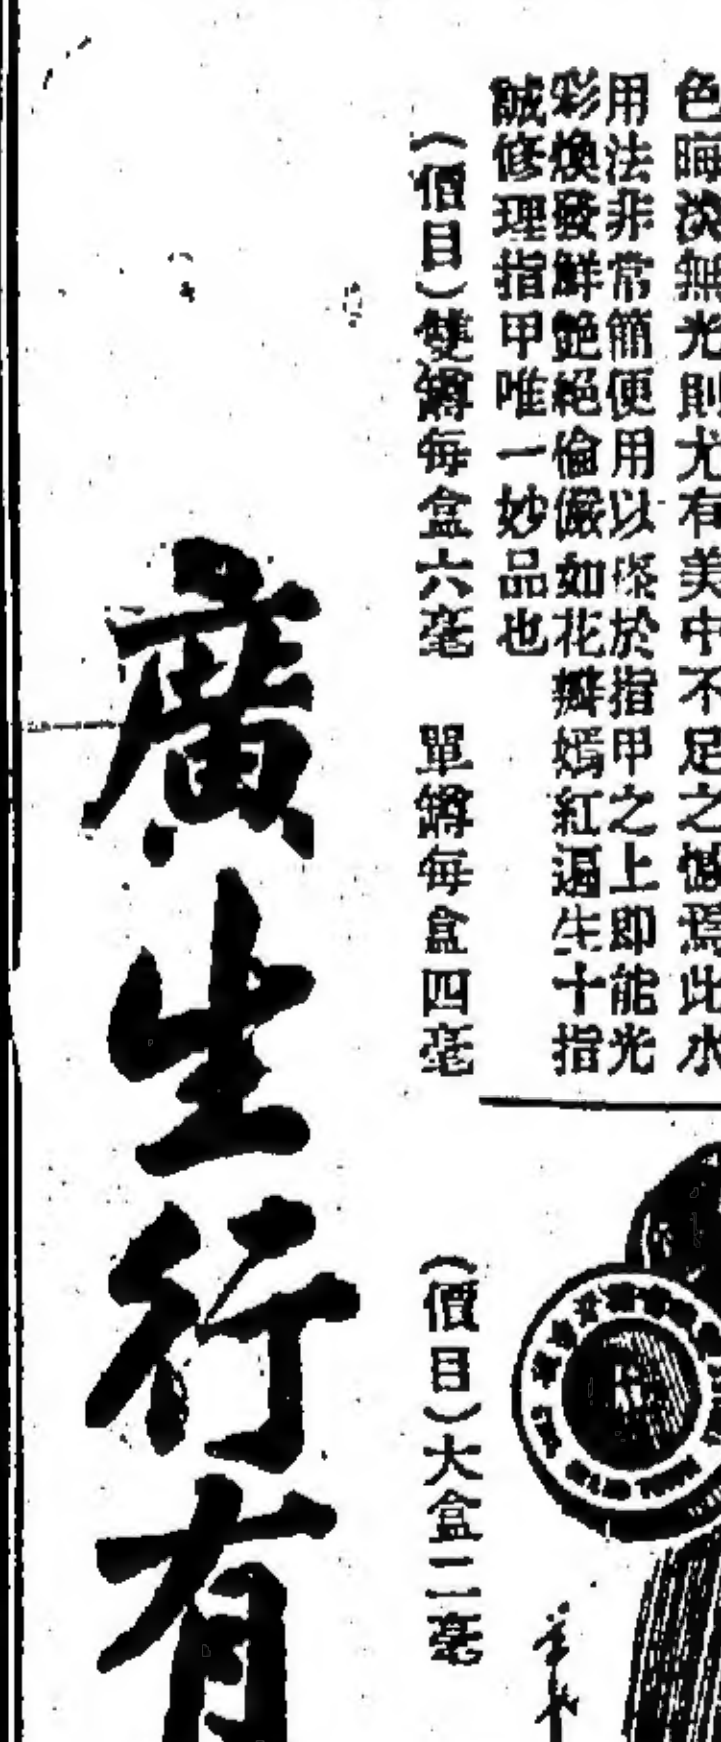 色晦淡無光則尤有美中不足之憾焉此水
用法非常簡便用以搽於指甲之上即能光
彩煥發鮮艶絕倫儼如花瓣嫣紅逼生十指
誠修理指甲唯一妙品也
(價目)雙罇每盒六毫 單罇每盒四毫
(價目)大盒二毫
廣生行有